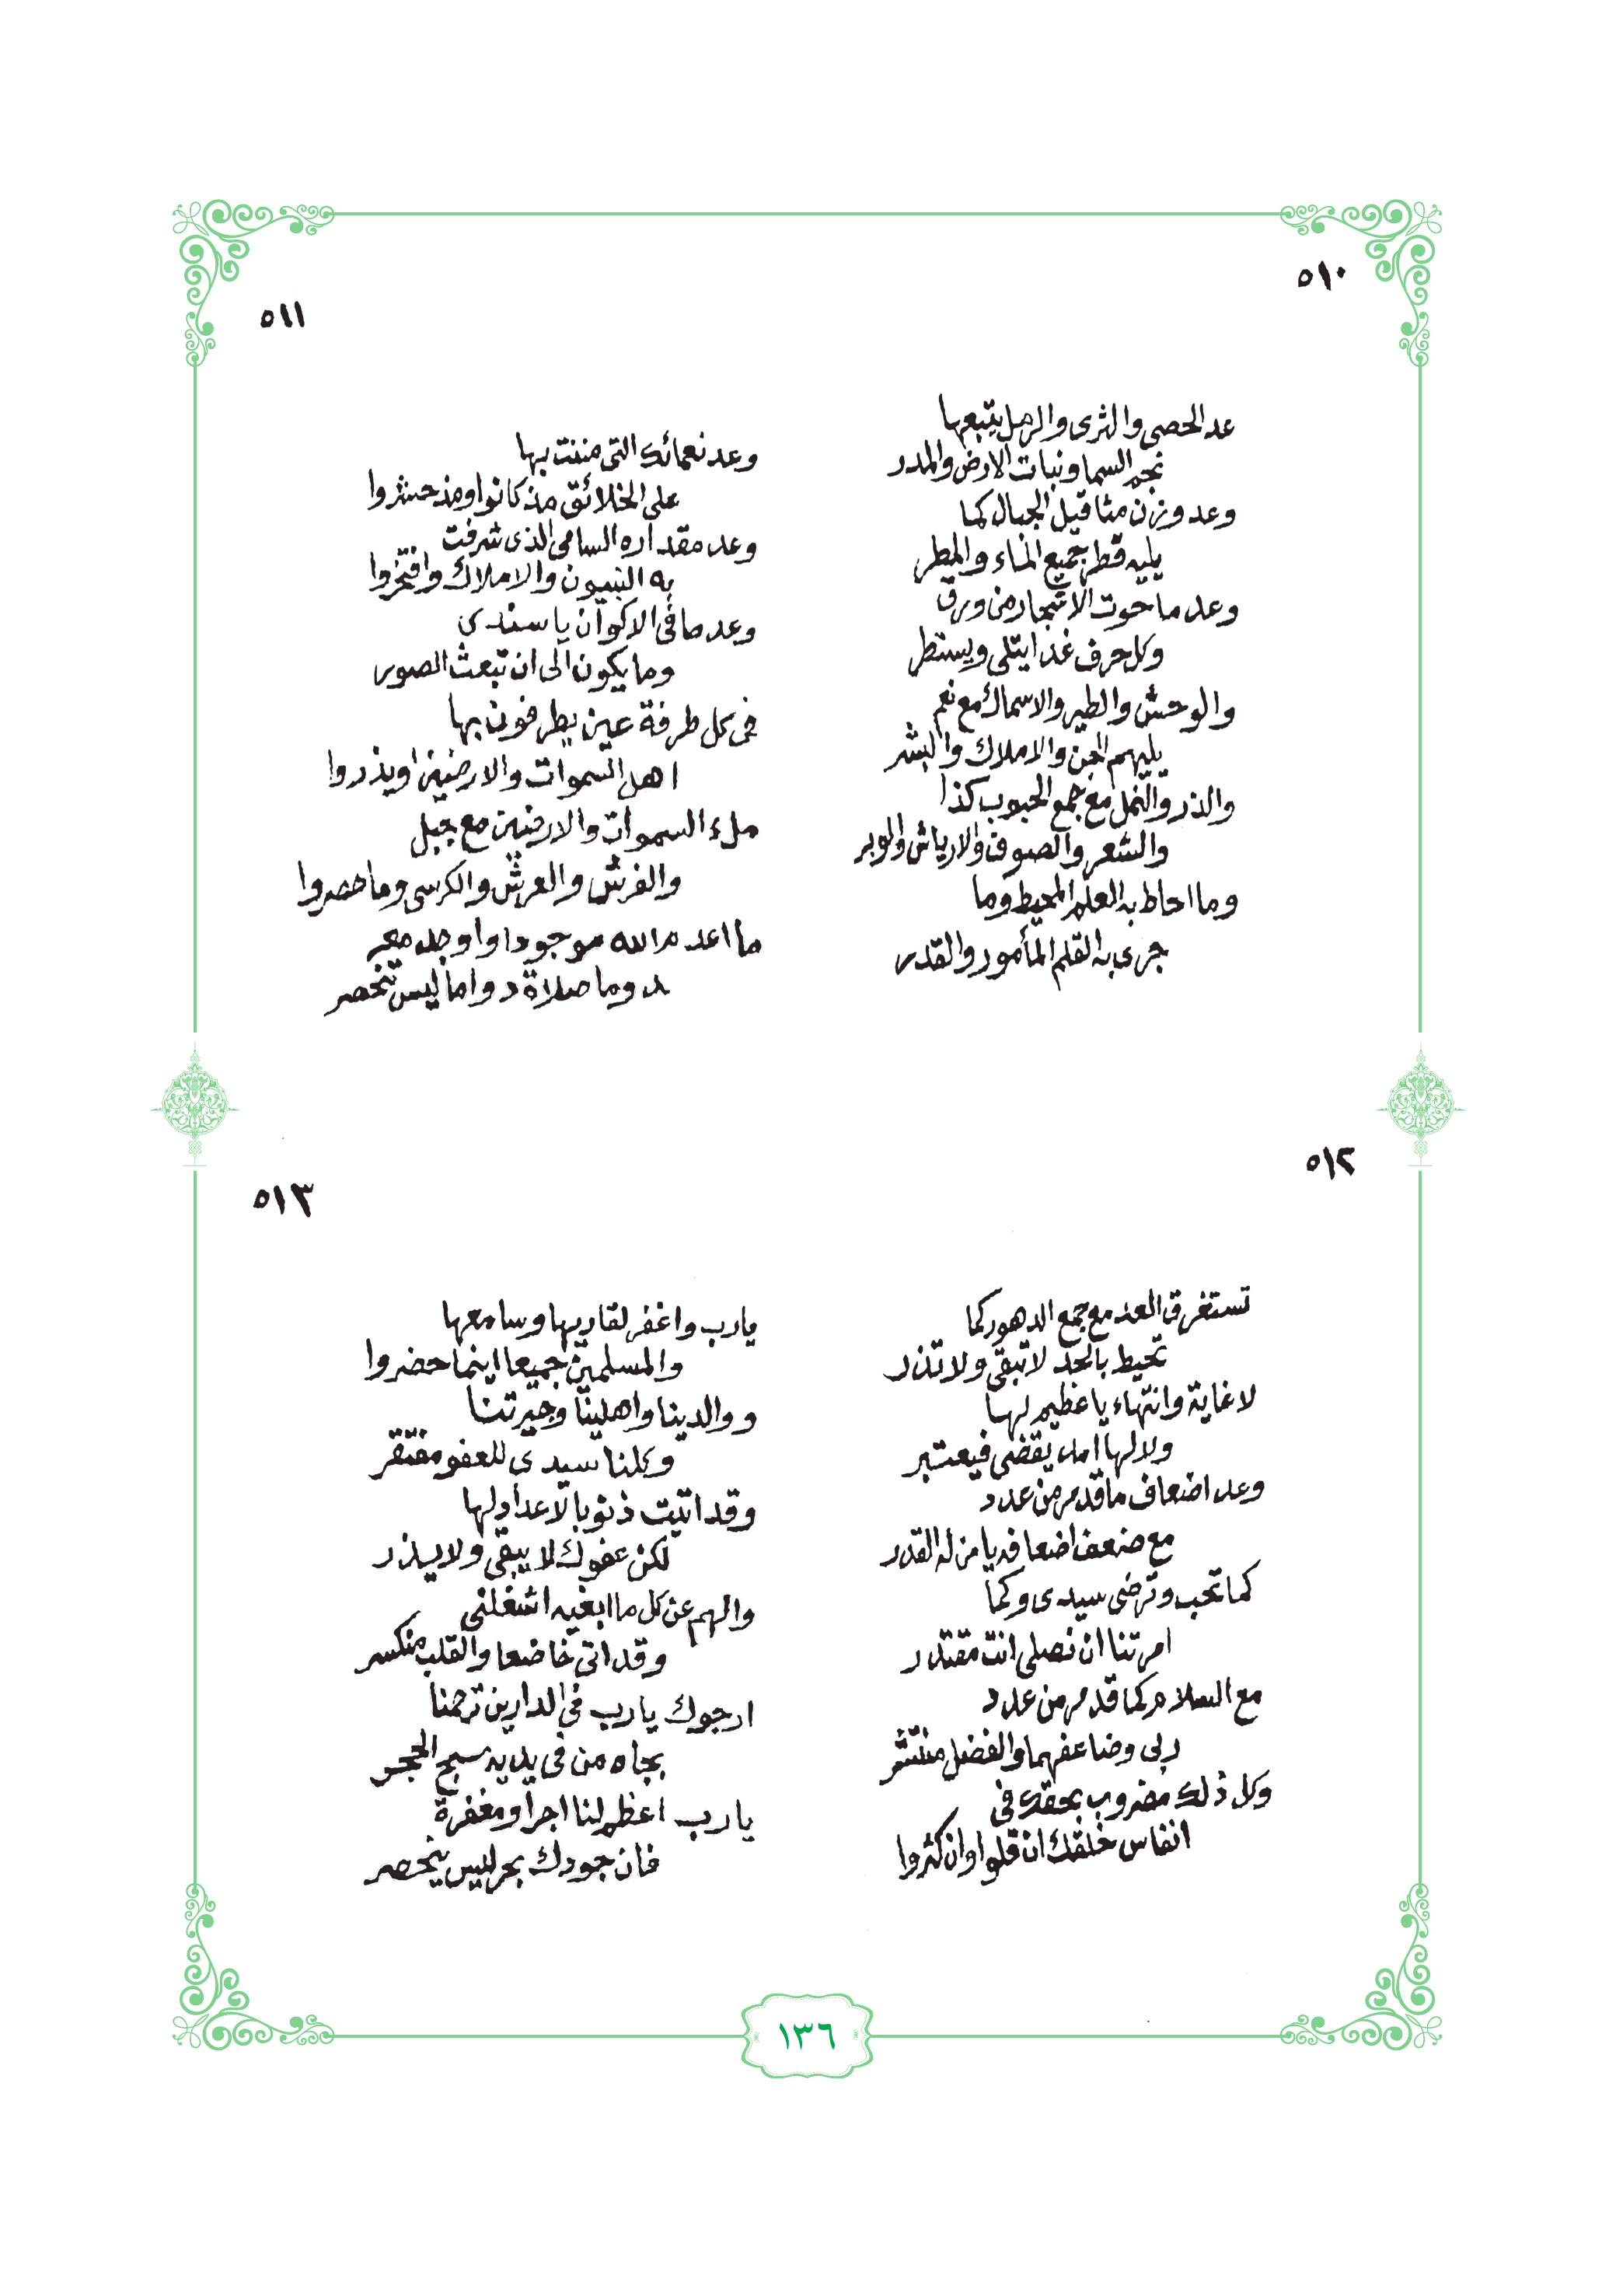 ٥١٠
عد الحصى والثرى والرمل يتبعها
نجم السما ونبات الارض والمدر
وعد وزن مثاقيل الجبال كما
يليه قطر جميع الماء والمطر
وعد ما حوت الاشجار من ورق
وكل حرف غدا يتلى ويستطر
والوحش والطير والاسماك مع نعم
يليهم الجن والاملاك والبشر
والذر والنمل مع جمع الحبوب كذا
والشعر والصوف والارياش والوبر
وما احاط به العلم المحيط وما
جرى به القلم المأمور والقدر
٥١١
وعد نعمائك التي مننت بها
على الخلائق مذ كانوا ومذ حشروا
وعد مقداره السامى الذى شرفت
به النبيون والاملاك وافتخروا
وعد ما فى الاكوان يا سندى
وما يكون الى ان تبعث الصور
فى كل طرفة عين يطرفون بها
اهل السموات والارضين او يذروا
ملء السموات والارضين مع جبل
والفرش والعرش والكرسى وما حصروا
ما اعدم الله موجودا واوجد معـ
ـدوما صلاة دواما ليس تنحصر
٥١٢
تستغرق العد مع جمع الدهور كما
تحيط بالحد لا تبقى ولا تذر
لا غاية وانتهاء يا عظيم لها
ولا لها امد يقضى فيعتبر
وعد اضعاف ما قد مر من عدد
مع ضعف اضعافه يا من له القدر
كما تحب وترضى سيدى وكما
امرتنا ان نصلى انت مقتدر
مع السلام كما قد مر من عدد
ربى وضاعفهما والفضل منتشر
وكل ذلك مضروب بحقك فى
انفاس خلقك ان قلوا وان كثروا
٥١٣
يارب واغفر لقاريها وسامعها
والمسلمين جميعا اينما حضروا
ووالدينا واهلينا وجيرتنا
وكلنا سيدى للعفو مفتقر
وقد اتيت ذنوبا لا عداد لها
لكن عفوك لا يبقى ولا يذر
والهم عن كل ما ابغيه اشغلنى
وقد اتى خاضعا والقلب منكسر
ارجوك يارب فى الدارين ترحمنا
بجاه من فى يديه سبح الحجر
يارب اعظم لنا اجرا ومغفرة
فان جودك بحر ليس ينحصر
١٣٦